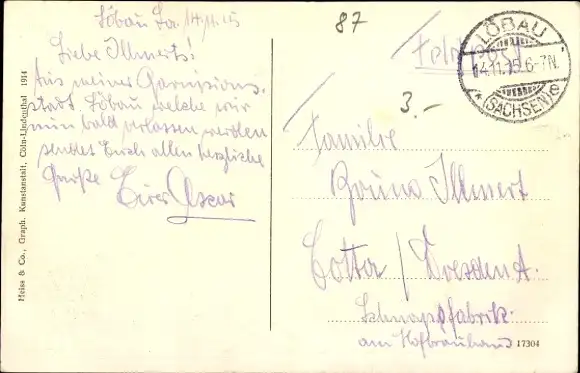 Löbau Sa 14.11.15
Liebe Illmerts!
Aus meiner Garnisons-
stadt Löbau welche wir
nun bald verlassen werden
sendet Euch allen herzliche
Grüße Euer Oscar
87
Feldpost
3.-
LÖBAU
14.11.15.6-7N.
* (SACHSEN) e
Familie
Bruno Illmert
Cotta / Dresden A.
Schnapsfabrik
am Hofbrauhaus
17304
Heiss & Co., Graph. Kunstanstalt, Cöln-Lindenthal 1914